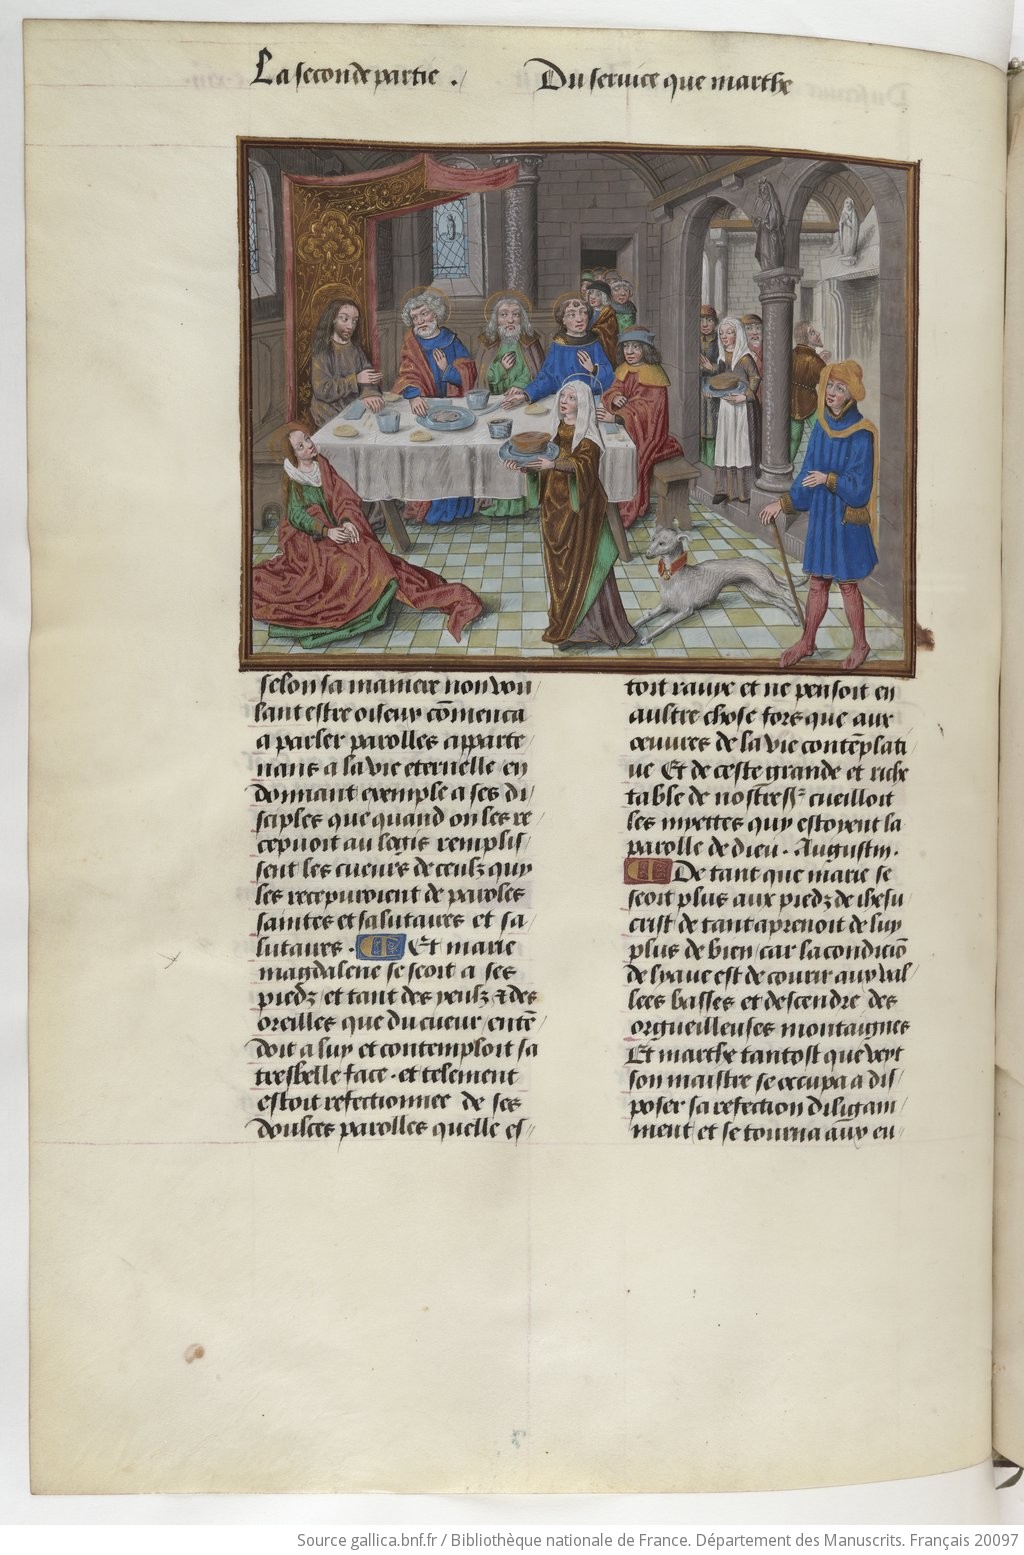 La seconde partie .
Du seruice que marthe
selon sa maniere non vou/
lant estre oiseux cōmenca
a parler parolles apparte/
nans a la vie eternelle en
donnant exemple a ses di/
sciples que quand on les re/
cepuoit au logis remplis/
sent les cueurs de ceulz quy
les recepuroient de paroles
saintes et salutaires et sa/
lutaires . Et marie
magdalene se seoit a ses
piedz et tant des yeulz & des
oreilles que du cueur entē/
doit a luy et contemploit sa
tresbelle face . et telement
estoit refectionnee de ses
doulces parolles quelle es/
toit rauye et ne pensoit en
aultre chose fors que aux
œuures de la vie contēplati/
ue Et de ceste grande et riche
table de nostre sr cueilloit
les myettes quy estoyent la
parolle de dieu . Augustin .
De tant que marie se
seoit plus aux piedz de ihesu
crist de tant aprenoit de luy
plus de bien car la condiciō
de lyaue est de courir aux val/
lees basses et descendre des
orgueilleuses montaignes
Et marthe tantost que veyt
son maistre se occupa a dis/
poser sa refection diligam/
ment et se tourna aux eu/
Source gallica.bnf.fr / Bibliothèque nationale de France. Département des Manuscrits. Français 20097